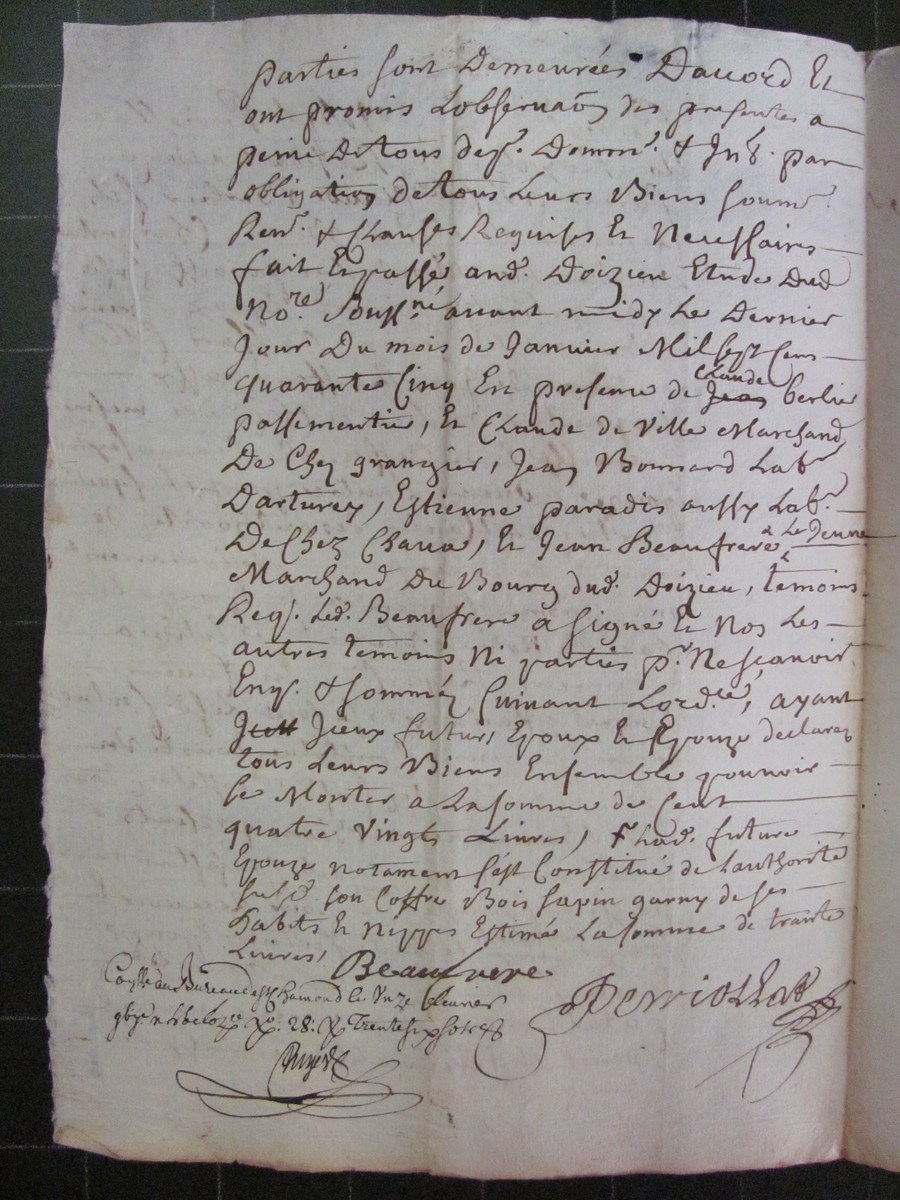 parties sont Demeurées Daccord Et
ont promis Lobservaõn des presentes a
peine De tous dep.s Domm.s & Jnt.s par
obligation de tous Leurs Biens soum.s
Ren.s & Clauses Requises Et Necessaires
fait Et passé aud. Doizieu Etude Dud
No.re Souss.né avant midy Le Dernier
Jour Du mois de Janvier Mil sept Cens
quarante Cinq En presence de Jean Claude berlier
passementie, Et Claude de Ville Marchand
De Chez grangier, Jean Bonnard Lab.r
Darturey, Estienne paradis aussy Lab.r
De Chez Chava, Et Jean Beaufrere Le Jeune
Marchand Du Bourg dud. Doizieu, temoins
Req.s Led. Beaufrere a signé Et Nos Les
autres temoins Ni parties p.r Ne scavoir
Enq.s & sommés suivant Lord.ce, ayant
Jceux futurs Epoux Et Epouze declarez
tous Leurs Biens Ensemble pouvoir
se Monter a La somme de Cent
quatre vingts Livres, Lad. future
Epouze notament sest Constitué de Lauthorité
susd. son Coffre Bois sapin garny de ses
habits Et nippes Estimé La somme de trante
Livres,
Beaufrere
Perriollat
Con.lle au Bureau de St Chamond le Unze fevrier
28. Trente six sols